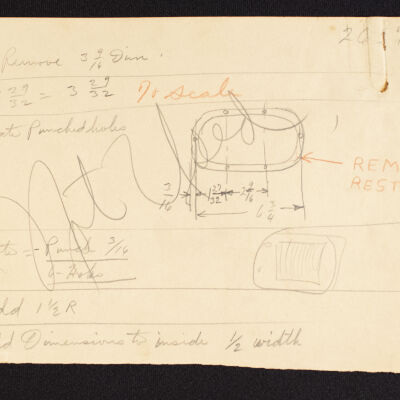 Remove 3 9/16 Dim.
29/32 = 3 29/32 To scale
Punched holes
3/16
1 29/32
2 9/16
6 3/4
REM
REST
= Punch 3/16
6-Holes
1 1/2 R
Dimensions to inside 1/2 width
Not Used